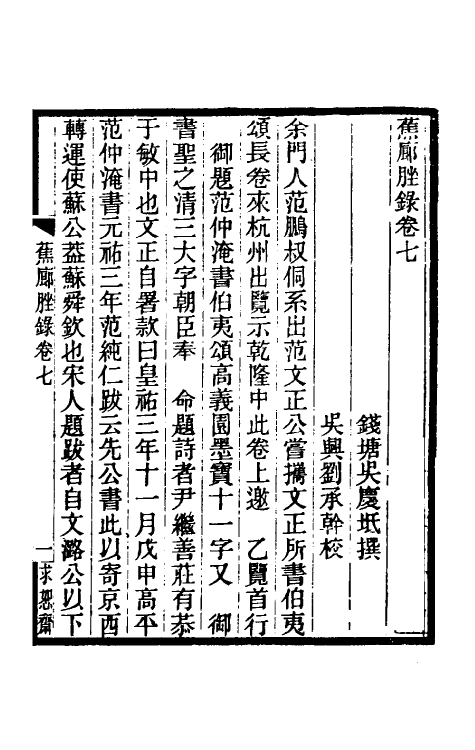 蕉廊脞錄卷七
錢塘吳慶坻撰
吳興劉承幹校
余門人范鵬叔侗系出范文正公嘗攜文正所書伯夷
頌長卷來杭州出覽示乾隆中此卷上邀　乙覽首行
御題范仲淹書伯夷頌高義園墨寶十一字又　御
書聖之清三大字朝臣奉　命題詩者尹繼善莊有恭
于敏中也文正自署款曰皇祐三年十一月戊申高平
范仲淹書元祐三年范純仁跋云先公書此以寄京西
轉運使蘇公葢蘇舜欽也宋人題跋者自文潞公以下
蕉廊脞錄卷七
一
求恕齋